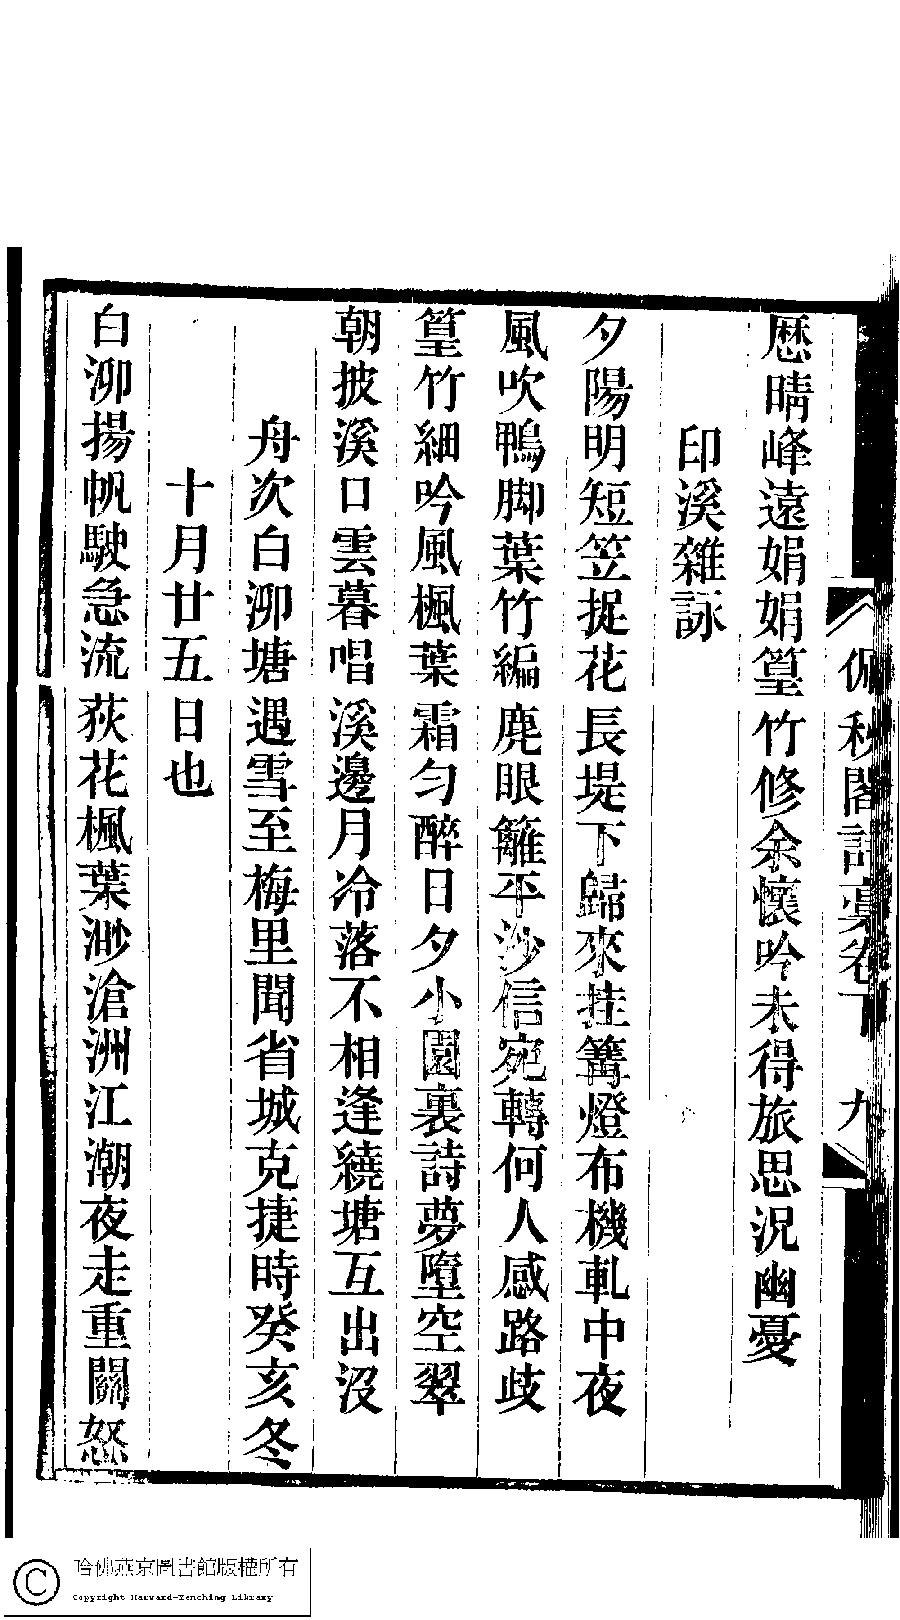 㑳秋閣詩稾卷下　九
懕晴峰遠娟娟篁竹修余懷吟未得旅思況幽憂
印溪雜詠
夕陽明短笠捉花長堤下歸來挂篝燈布機軋中夜
風吹鴨脚葉竹編麂眼籬平沙信宛轉何人感路歧
篁竹細吟風楓葉霜匀醉日夕小園裏詩夢墮空翠
朝披溪口雲暮唱溪邊月冷落不相逢繞塘互出沒
舟次白泖塘遇雪至梅里聞省城克捷時癸亥冬
十月廿五日也
白泖揚帆駛急流荻花楓葉渺滄洲江潮夜走重關怒
哈佛燕京圖書館版權所有
Copyright Harvard-Yenching Library